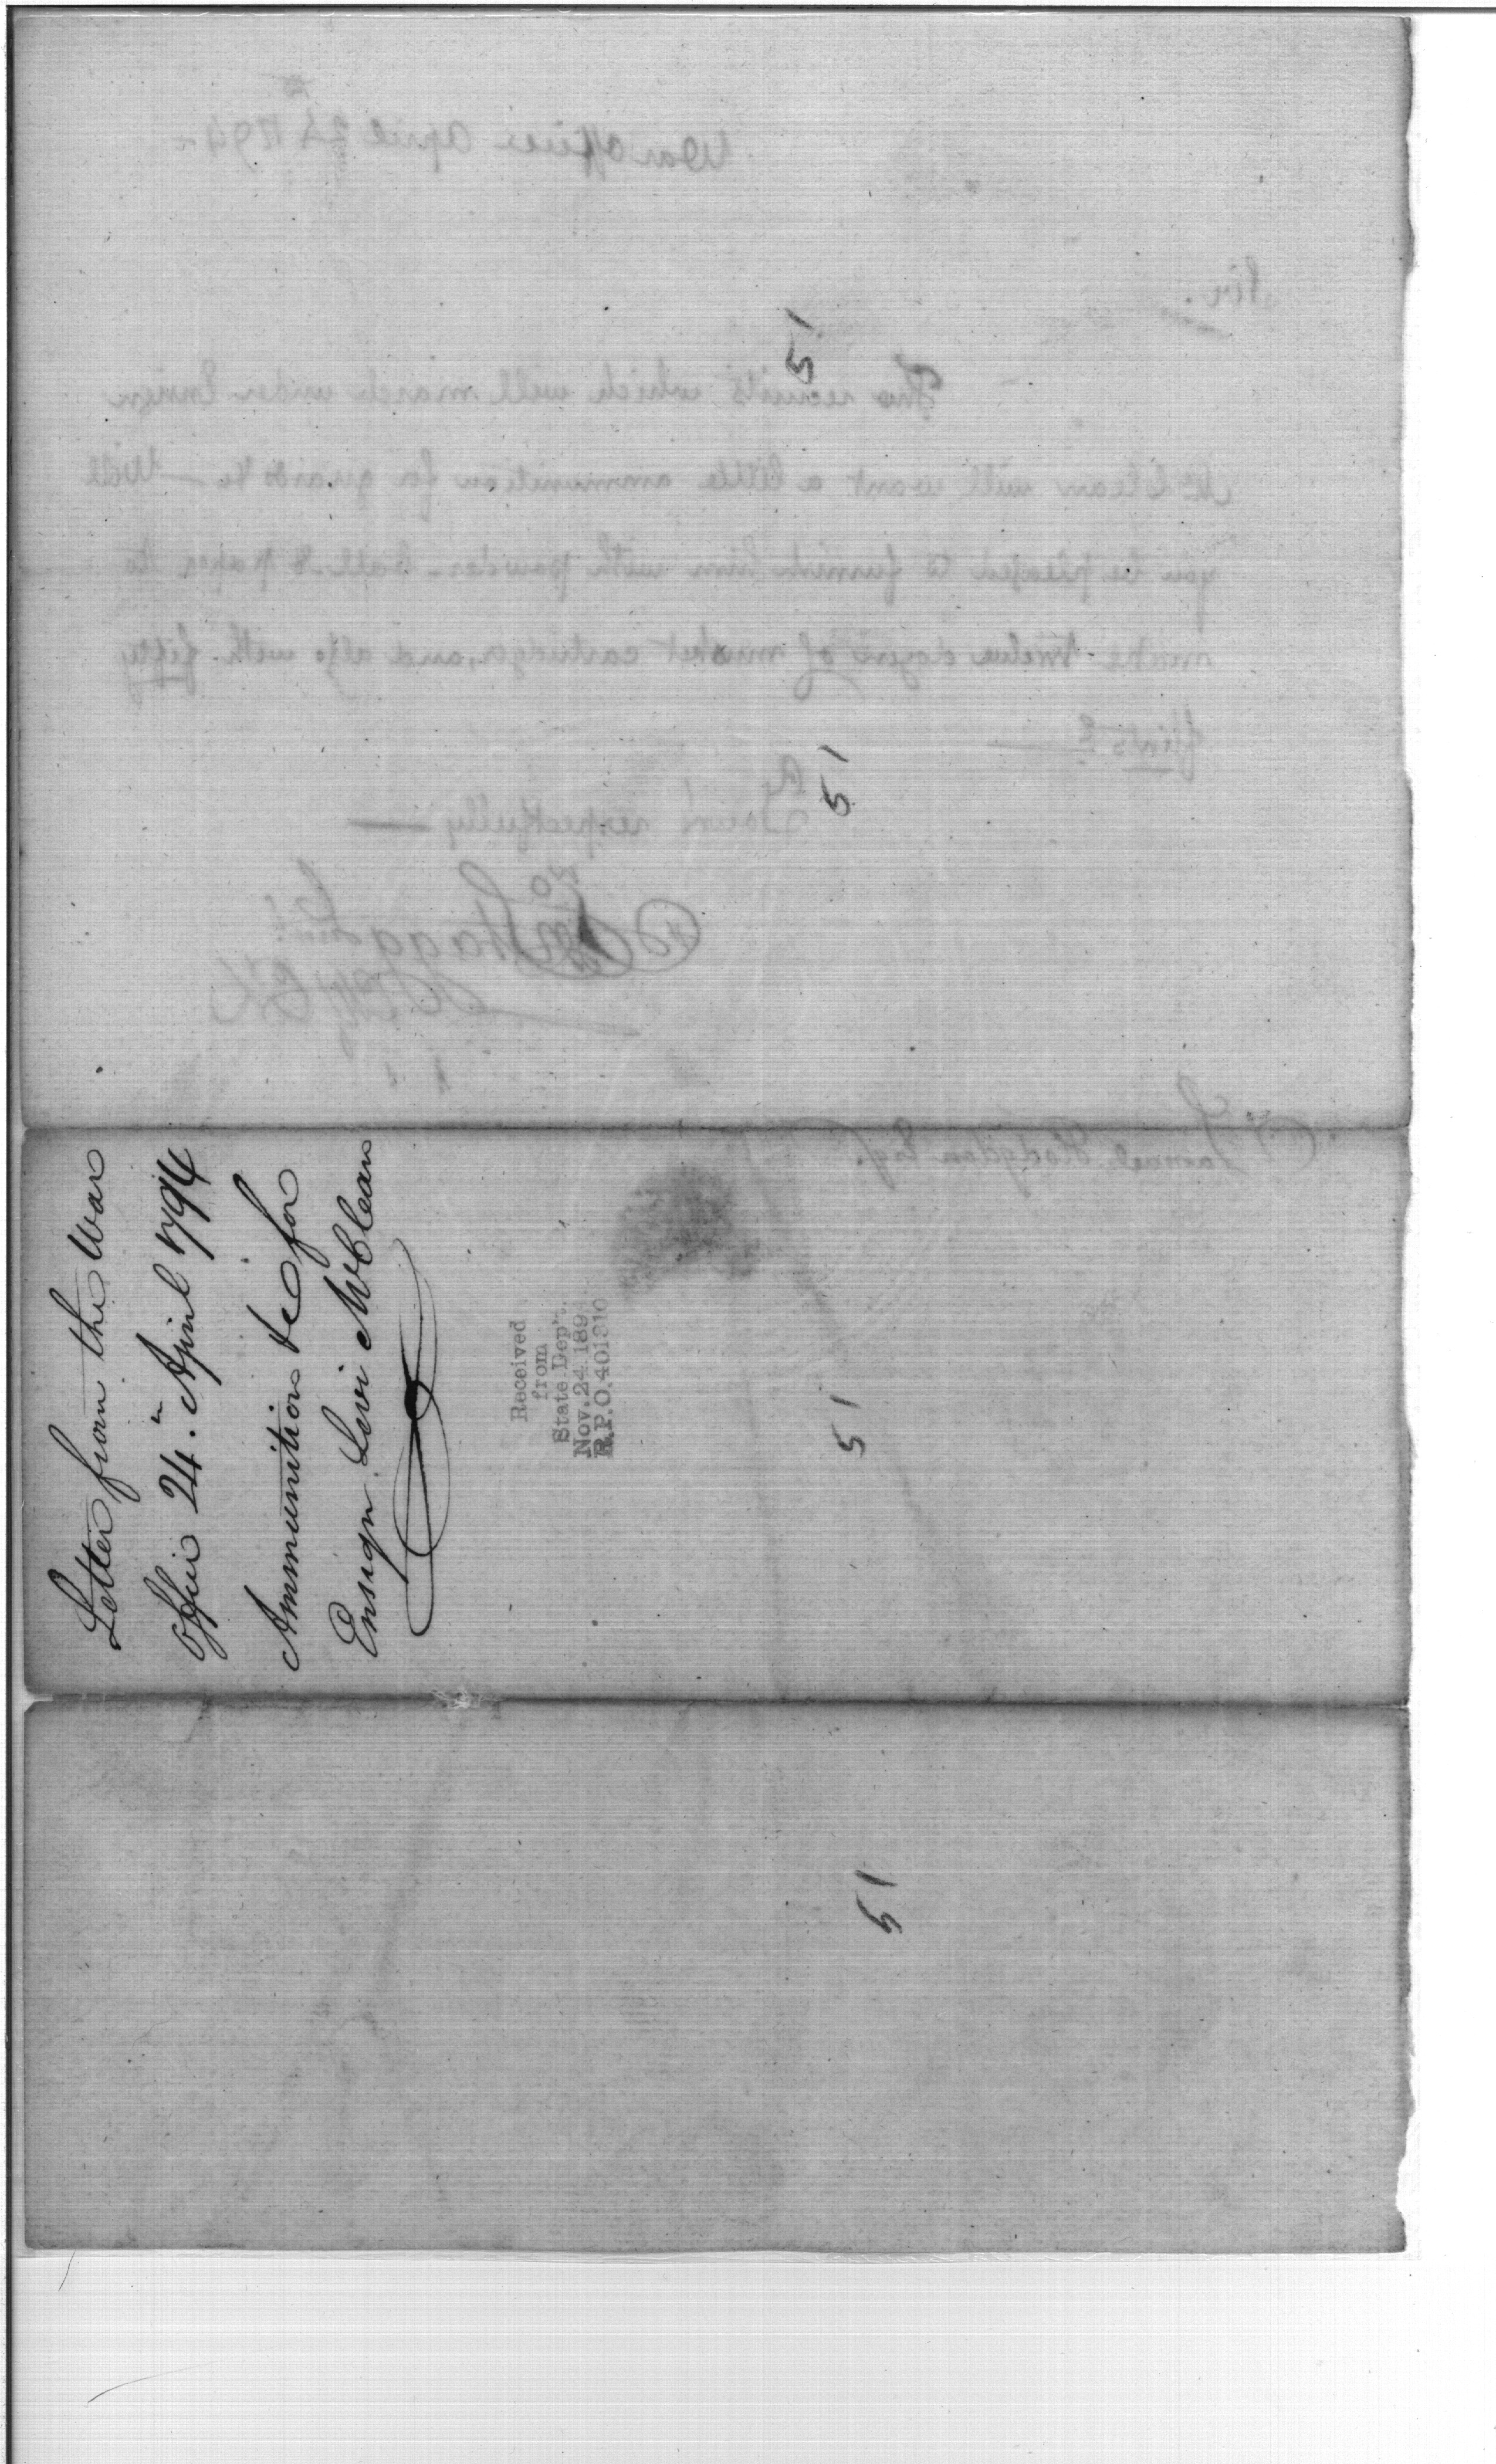 War office April 24 1794
Sir.
The recruits which will march under Ensign
McClean will want a little ammunition for guards &c — Will
you be pleased to furnish him with powder - ball & paper to
make twelve dozens of musket cartridges, and also with fifty
flints?
respectfully
Jno Stagg Junr
Samuel Hodgdon Esqr.
51
51
Letter from the War
Office 24. April 1794
Ammunition &c for
Ensign Levi McClean
Received
from
State Dep't.
Nov. 24 189
R.P.O. 401310
51
51